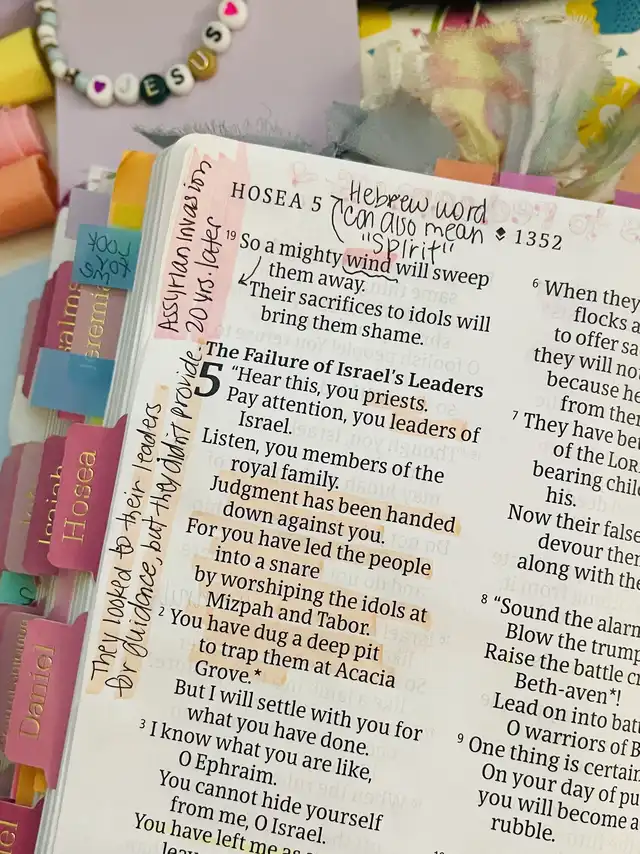 JESUS
HOSEA 5
1352
Hebrew word
can also mean
"spirit"
Assyrian Invasion
20 yrs. later
19 So a mighty wind will sweep
them away.
Their sacrifices to idols will
bring them shame.
The Failure of Israel's Leaders
5 "Hear this, you priests.
Pay attention, you leaders of
Israel.
Listen, you members of the
royal family.
Judgment has been handed
down against you.
For you have led the people
into a snare
by worshiping the idols at
Mizpah and Tabor.
2 You have dug a deep pit
to trap them at Acacia
Grove.*
But I will settle with you for
what you have done.
3 I know what you are like,
O Ephraim.
You cannot hide yourself
from me, O Israel.
You have left me as
They looked to their leaders
for guidance, but they didn't provide.
6 When they
flocks a
to offer sa
they will no
because he
from the
7 They have be
of the LOR
bearing chil
his.
Now their false
devour the
along with the
8 "Sound the alar
Blow the trump
Raise the battle c
Beth-aven*!
Lead on into bat
O warriors of B
9 One thing is certai
On your day of pu
you will become a
rubble.
Hosea
Daniel